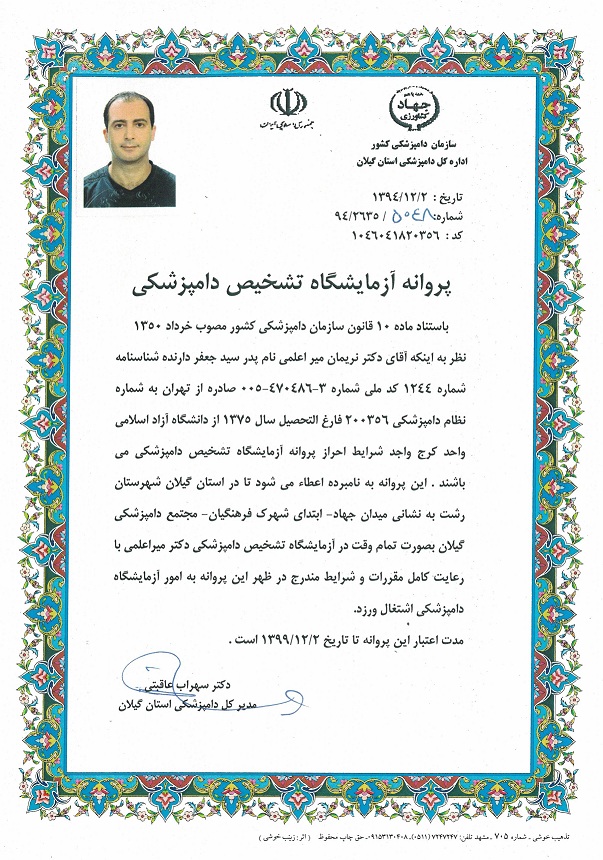 جمهوری اسلامی ایران
همه با هم
جهاد
کشاورزی
سازمان دامپزشکی کشور
اداره کل دامپزشکی استان گیلان
تاریخ : ۱۳۹٤/۱۲/۲
شماره: ۵۰۴۸ / ۹٤/۲٦۳٥
کد : ۱۰٤٦۰٤۱۸۲۰۳٥٦
پروانه آزمایشگاه تشخیص دامپزشکی
باستناد ماده ۱۰ قانون سازمان دامپزشکی کشور مصوب خرداد ۱۳٥۰
نظر به اینکه آقای دکتر نریمان میر اعلمی نام پدر سید جعفر دارنده شناسنامه
شماره ۱۲٤٤ کد ملی شماره ۳-٤۷۰٤۸٦-۰۰٥ صادره از تهران به شماره
نظام دامپزشکی ۲۰۰۳٥٦ فارغ التحصیل سال ۱۳۷٥ از دانشگاه آزاد اسلامی
واحد کرج واجد شرایط احراز پروانه آزمایشگاه تشخیص دامپزشکی می
باشند . این پروانه به نامبرده اعطاء می شود تا در استان گیلان شهرستان
رشت به نشانی میدان جهاد- ابتدای شهرک فرهنگیان- مجتمع دامپزشکی
گیلان بصورت تمام وقت در آزمایشگاه تشخیص دامپزشکی دکتر میراعلمی با
رعایت کامل مقررات و شرایط مندرج در ظهر این پروانه به امور آزمایشگاه
دامپزشکی اشتغال ورزد.
مدت اعتبار این پروانه تا تاریخ ۱۳۹۹/۱۲/۲ است .
دکتر سهراب عاقبتی
مدیر کل دامپزشکی استان گیلان
تذهیب خوشی ـ شماره ۷۰۵ ـ مشهد تلفن: ۷۲۴۷۲۴۷ (۰۵۱۱) ـ ۰۹۱۵۳۱۳۰۴۰۸ حق چاپ محفوظ ( اثر: زینب خوشی )